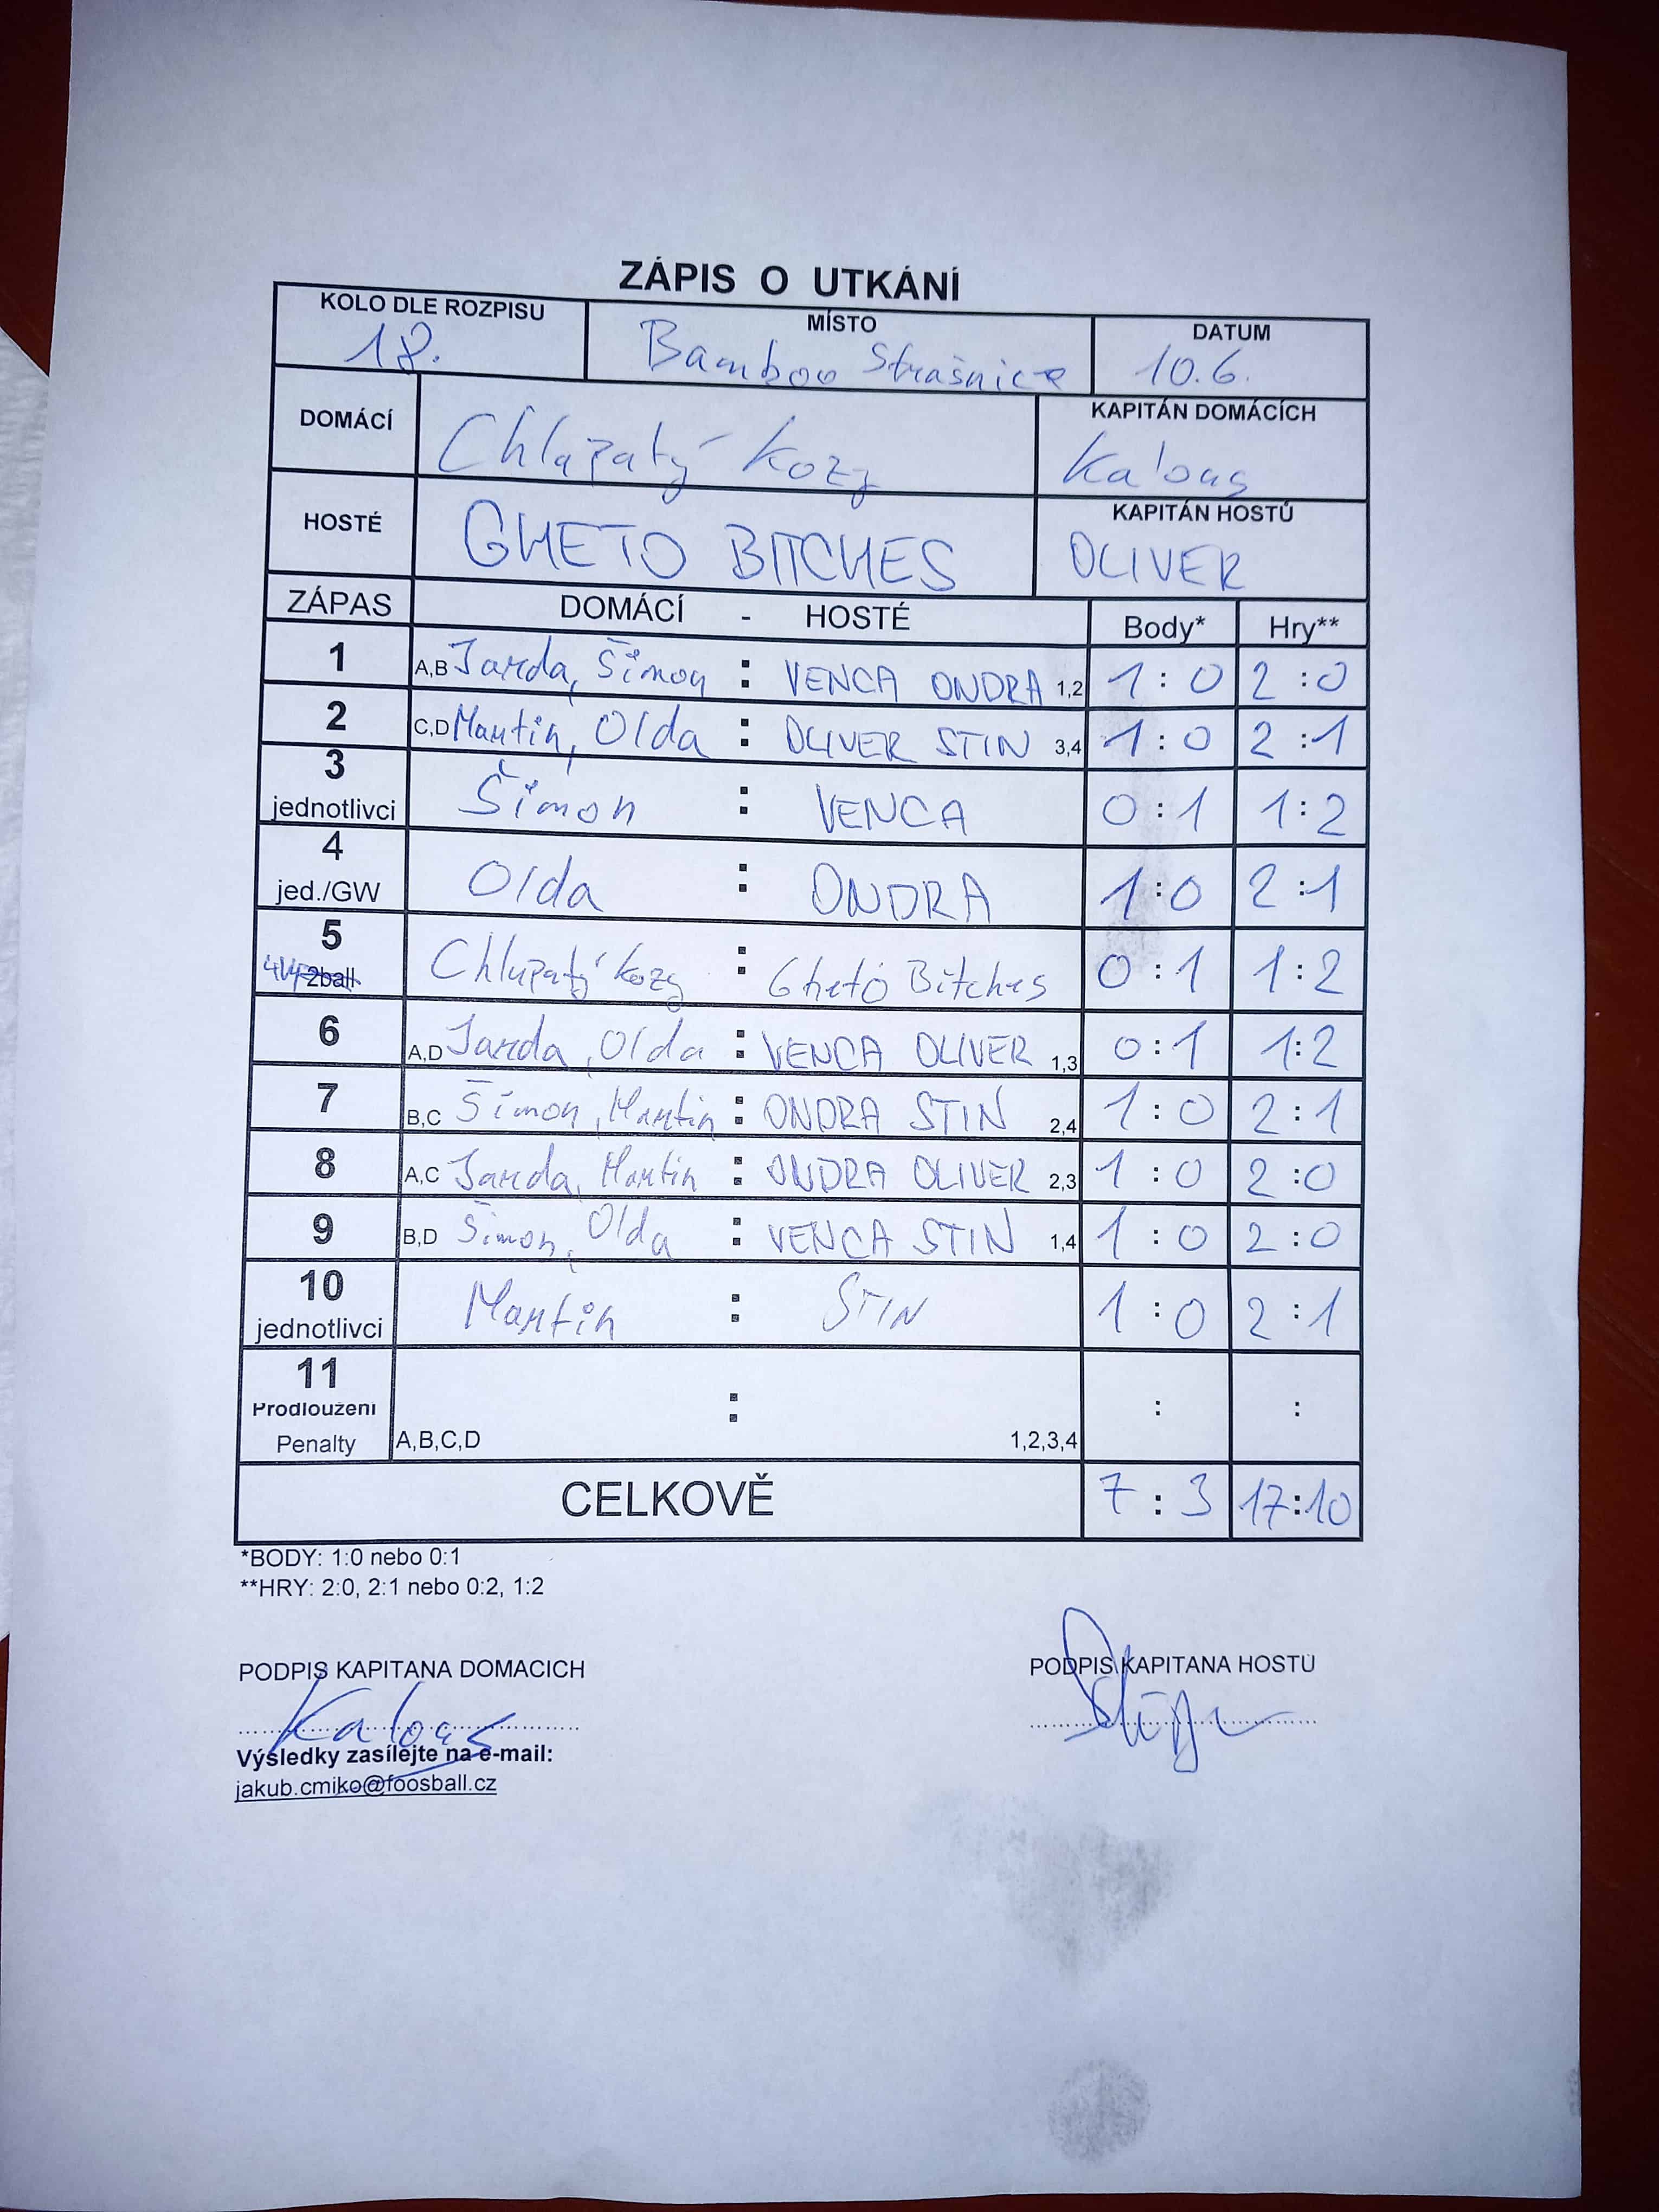 ZÁPIS O UTKÁNÍ
KOLO DLE ROZPISU MÍSTO DATUM
18. Bamboo Strašnice 10.6.
DOMÁCÍ Chlupatý kozy KAPITÁN DOMÁCÍCH
Kalous
HOSTÉ GHETO BITCHES KAPITÁN HOSTŮ
OLIVER
ZÁPAS DOMÁCÍ - HOSTÉ Body* Hry**
1 A,B Jarda, Šimon : VENCA ONDRA 1,2 1:0 2:0
2 C,D Martin, Olda : OLIVER STIN 3,4 1:0 2:1
3 jednotlivci Šimon : VENCA 0:1 1:2
4 jed./GW Olda : ONDRA 1:0 2:1
5 4v4 2ball Chlupatý kozy : Gheto Bitches 0:1 1:2
6 A,D Jarda, Olda : VENCA OLIVER 1,3 0:1 1:2
7 B,C Šimon, Martin : ONDRA STIN 2,4 1:0 2:1
8 A,C Jarda, Martin : ONDRA OLIVER 2,3 1:0 2:0
9 B,D Šimon, Olda : VENCA STIN 1,4 1:0 2:0
10 jednotlivci Martin : STIN 1:0 2:1
11 : : :
Prodloužení
Penalty A,B,C,D 1,2,3,4
CELKOVĚ 7:3 17:10
*BODY: 1:0 nebo 0:1
**HRY: 2:0, 2:1 nebo 0:2, 1:2
PODPIS KAPITANA DOMACICH PODPIS KAPITANA HOSTU
Kalous
Výsledky zasílejte na e-mail:
jakub.cmiko@foosball.cz